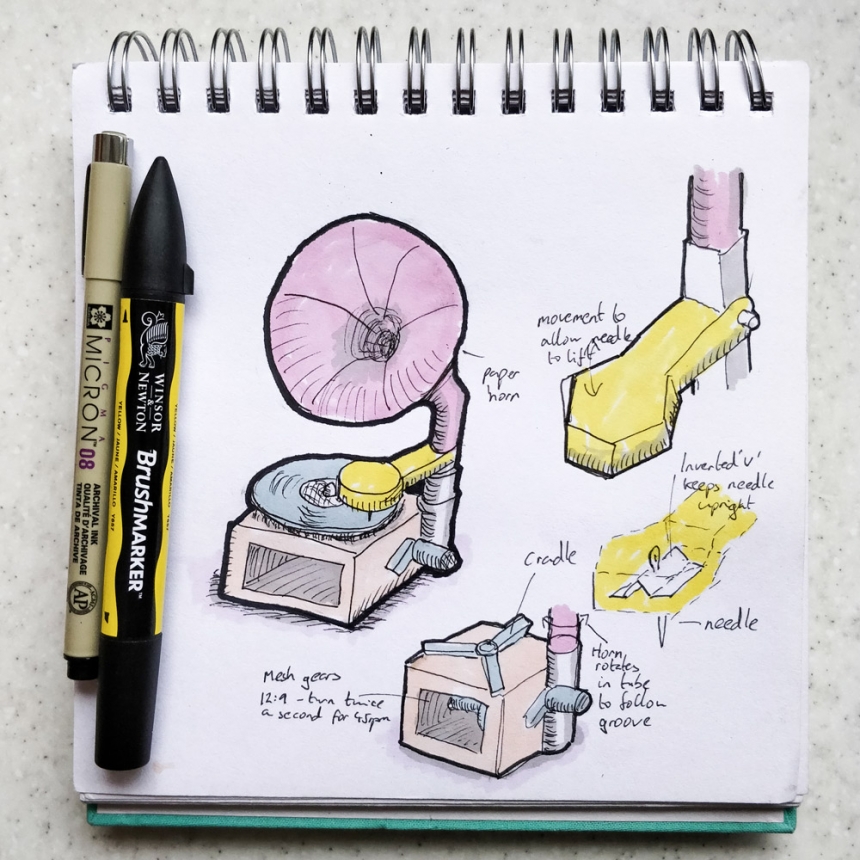 movement to
allow needle
to lift
paper
horn
Inverted 'v'
keeps needle
upright
needle
Cradle
Horn
rotates
in tube
to follow
groove
Mesh gears
12:9 - turn twice
a second for 45rpm
PIGMA
MICRON 08
ARCHIVAL INK
QUALITÉ D'ARCHIVAGE
TINTA DE ARCHIVE
AP
WINSOR
&
NEWTON
BrushMARKER™
YELLOW / JAUNE / AMARILLO